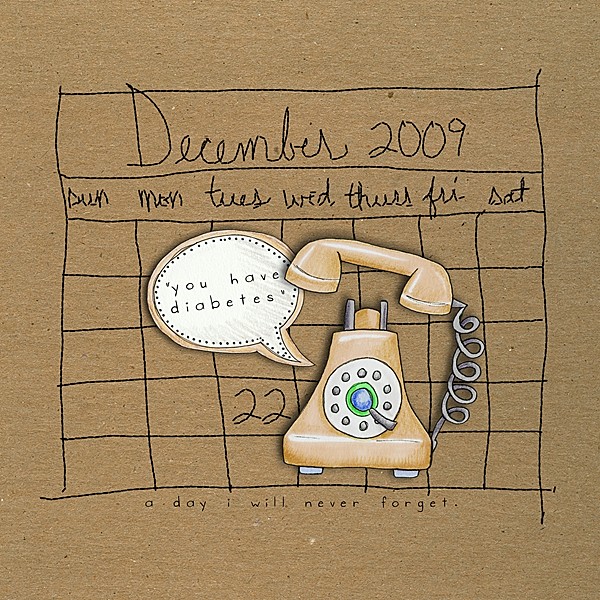 December 2009
sun mon tues wed thurs fri- sat
"you have
diabetes"
22
a day i will never forget.